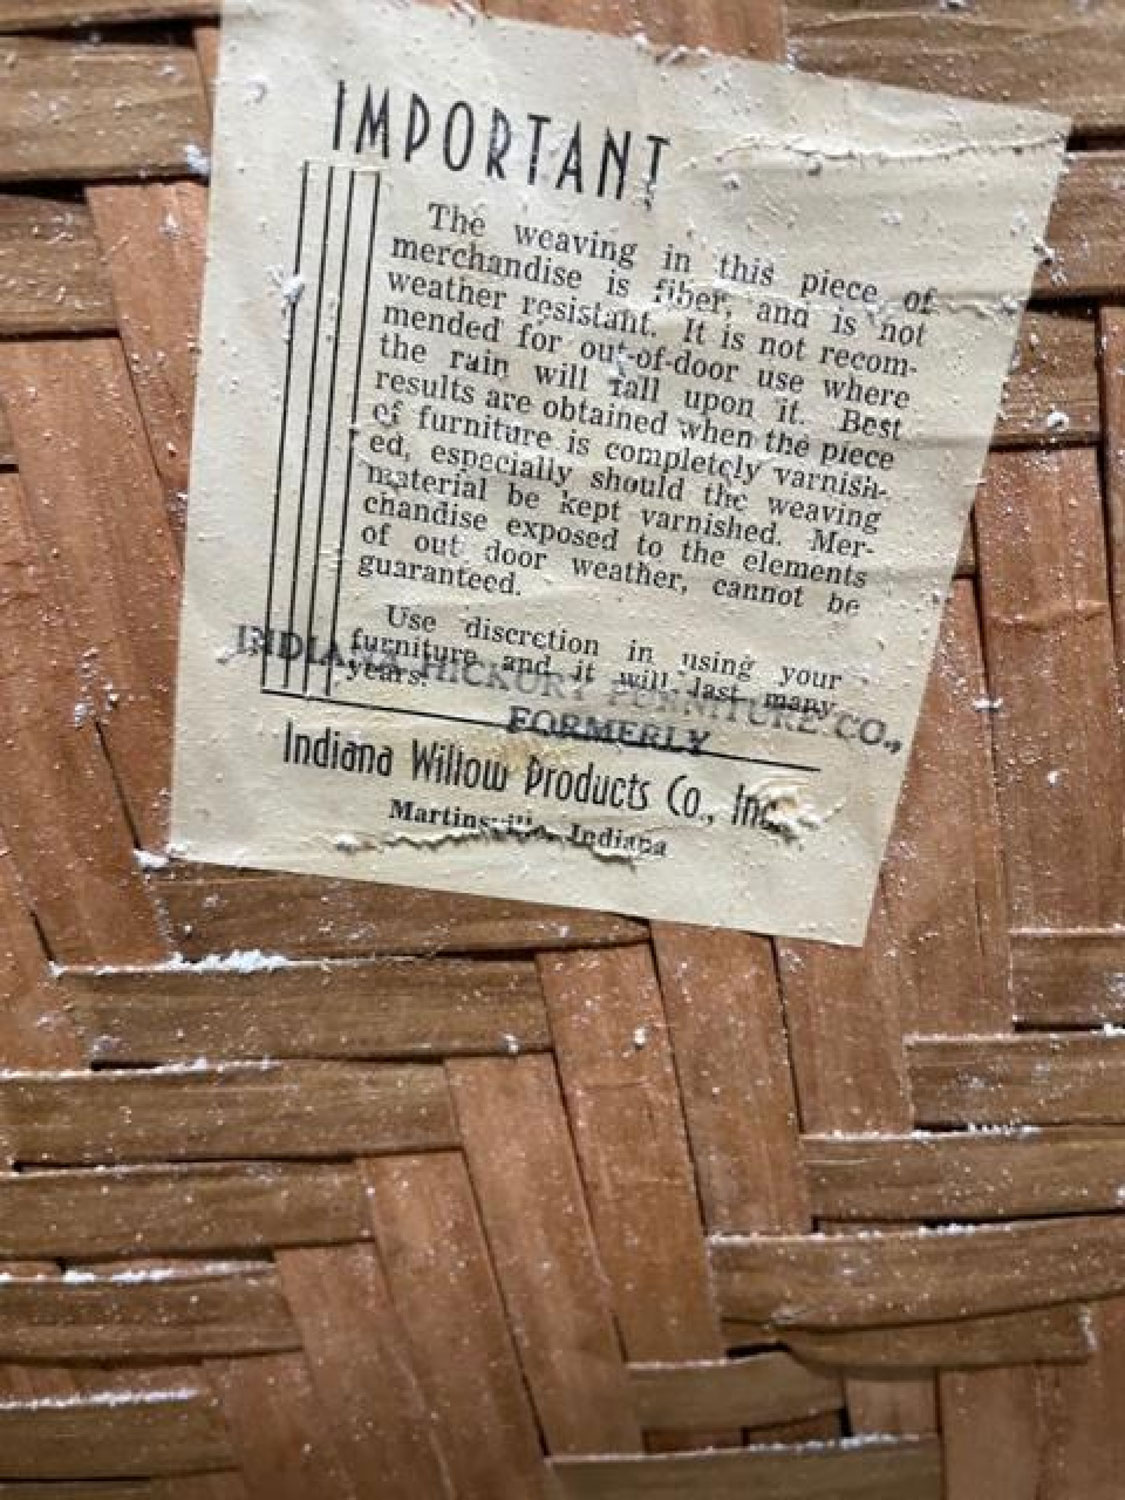 IMPORTANT
The weaving in this piece of
merchandise is fiber, and is not
weather resistant. It is not recom-
mended for out-of-door use where
the rain will fall upon it. Best
results are obtained when the piece
of furniture is completely varnish-
ed, especially should the weaving
material be kept varnished. Mer-
chandise exposed to the elements
of out door weather, cannot be
guaranteed.
Use discretion in using your
furniture and it will last many
years.
INDIANA HICKORY FURNITURE CO.,
FORMERLY
Indiana Willow Products Co., Inc.
Martinsville, Indiana